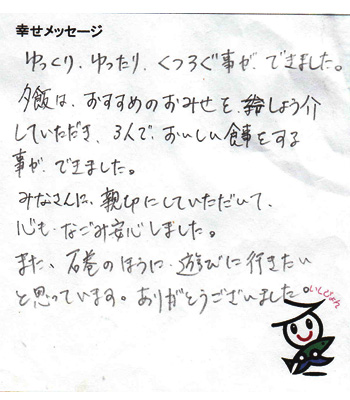 幸せメッセージ
ゆっくり、ゆったり、くつろぐ事が、できました。
夕飯は、おすすめのおみせを、しょう介
していただき、3人で、おいしい食事をする
事が、できました。
みなさんに、親切にしていただいて、
心も、なごみ安心しました。
また、石巻のほうに、遊びに行きたい
と思っています。ありがとうございました。
いしぴょん